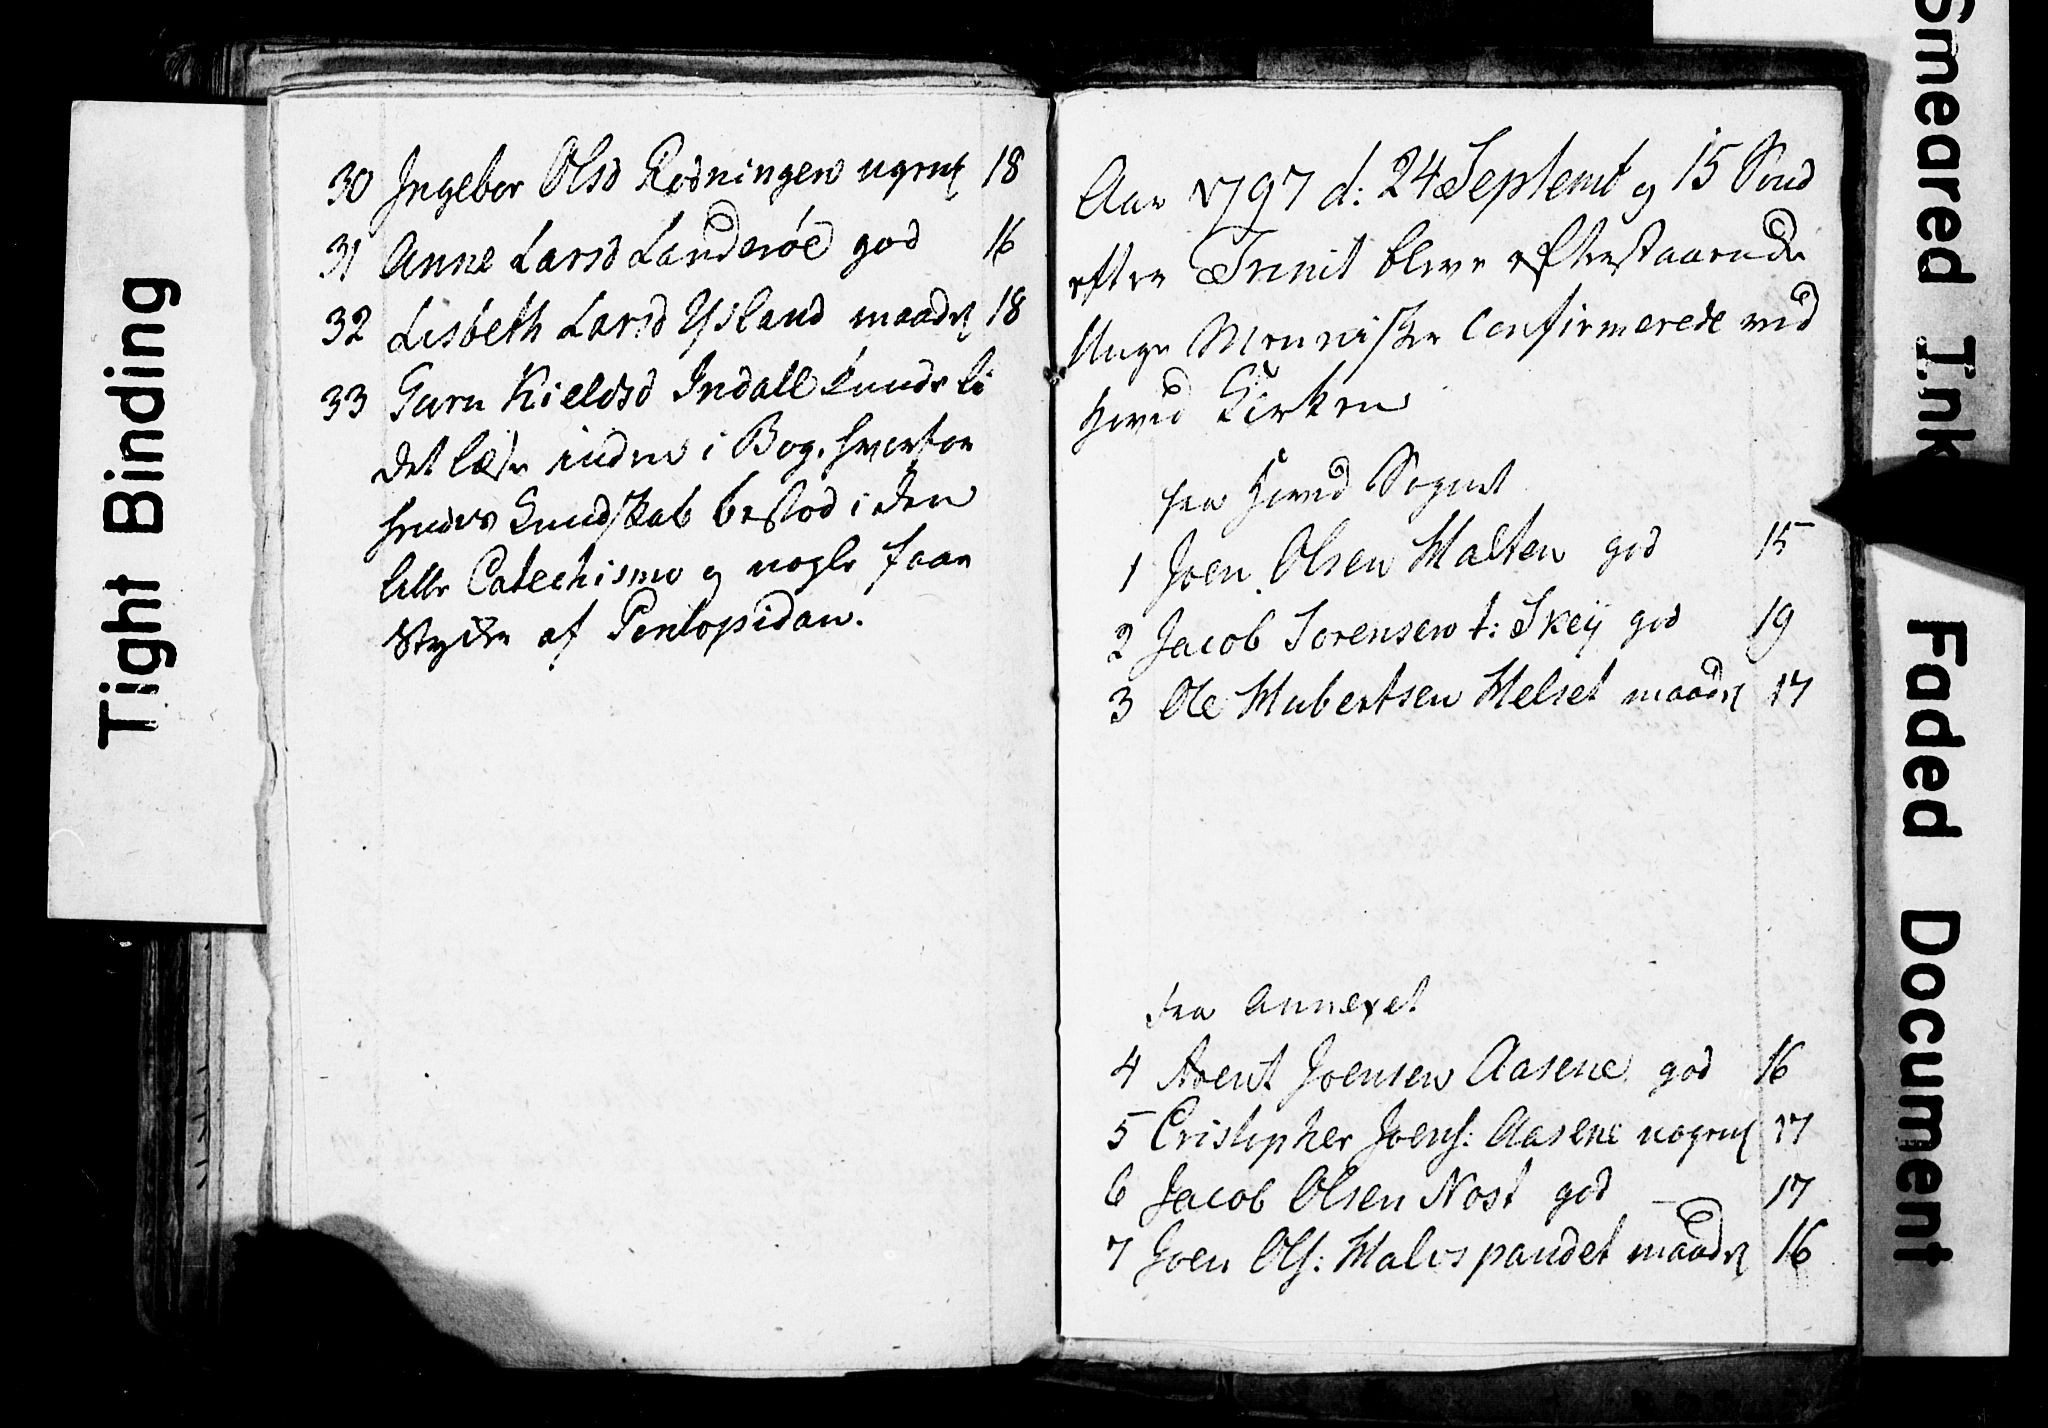 Tight Binding
30 Ingebor Olsd Rødningen 18
31 Anne Larsd Landerøe god 16
32 Lisbeth Larsd Ysland maadel 18
33 Guru Kieldsd Indall kunde li
det læse inden i Bog. hvorfor
hendes Kundskab bestod i den
lille Catechismo og nogle faae
Stycker af Pontopidan.
Aar 1797 d: 24 Septembr og 15 Sønd
efter Trinit bleve efterstaaende
Unge Menniske Confirmerede ved
Hevnd Kirken
fra Hevnd Sognet
1 Joen Olsen Walten god 15
2 Jacob Sorensen t: Skeÿ god 19
3 Ole Hubertsen Welset maadel 17
fra Annexet
4 Arent Joensen Aasene god 16
5 Cristopher Joens: Aasene 17
6 Jacob Olsen Nost god 17
7 Joen Ols: maadel 16
Smeared Ink
Faded Document